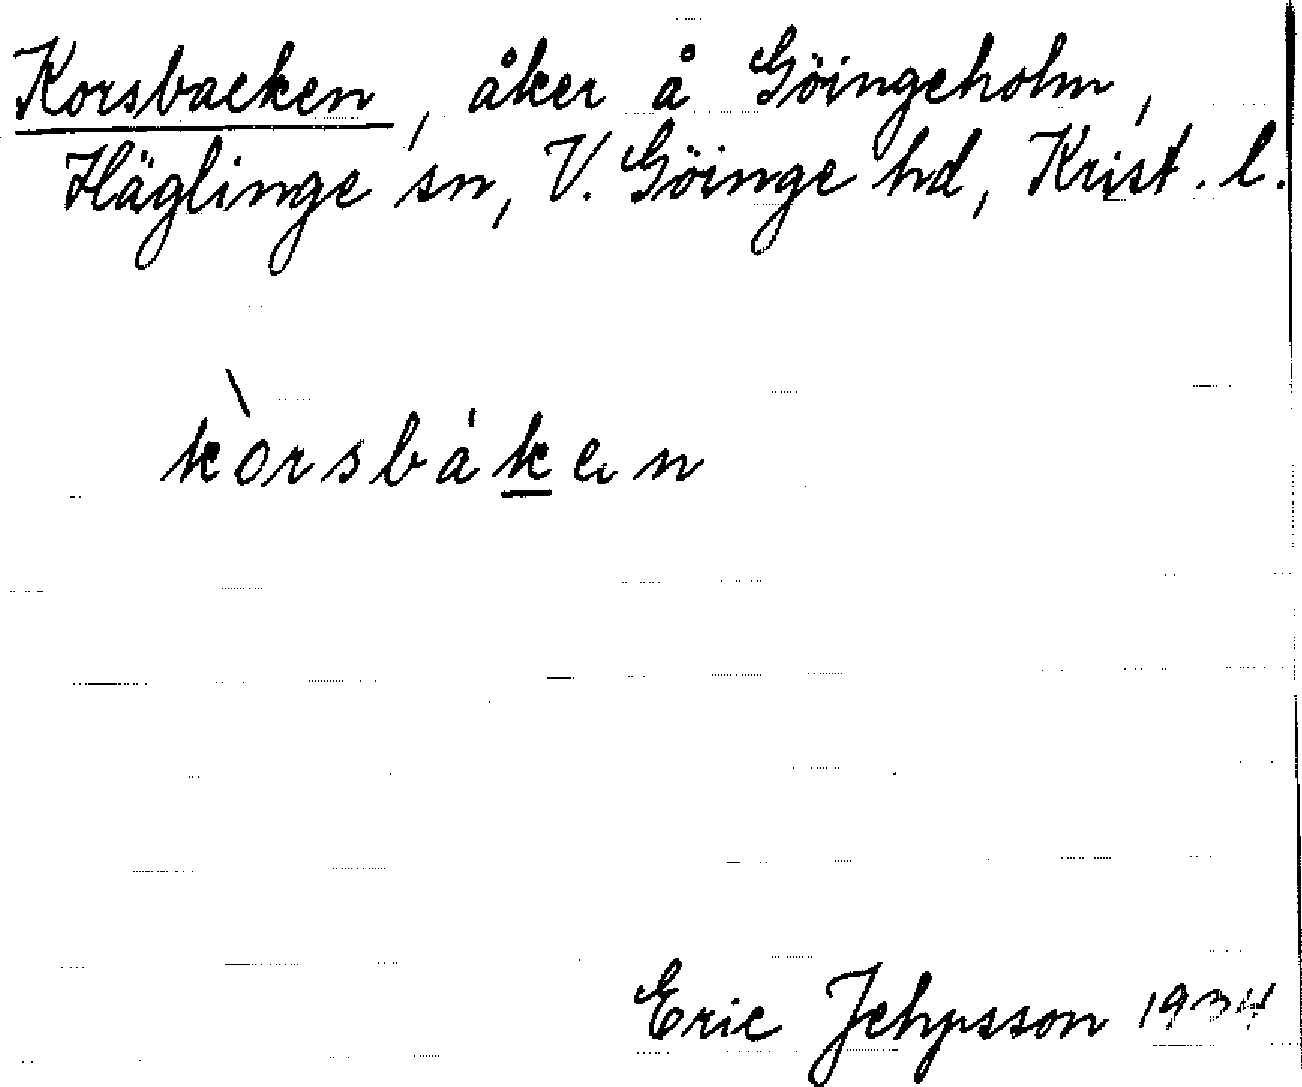 Korsbacken, åker å Göingeholm,
Häglinge sn, V. Göinge hd, Krist. l.
kòrsbáken
Eric Jehpsson 1934